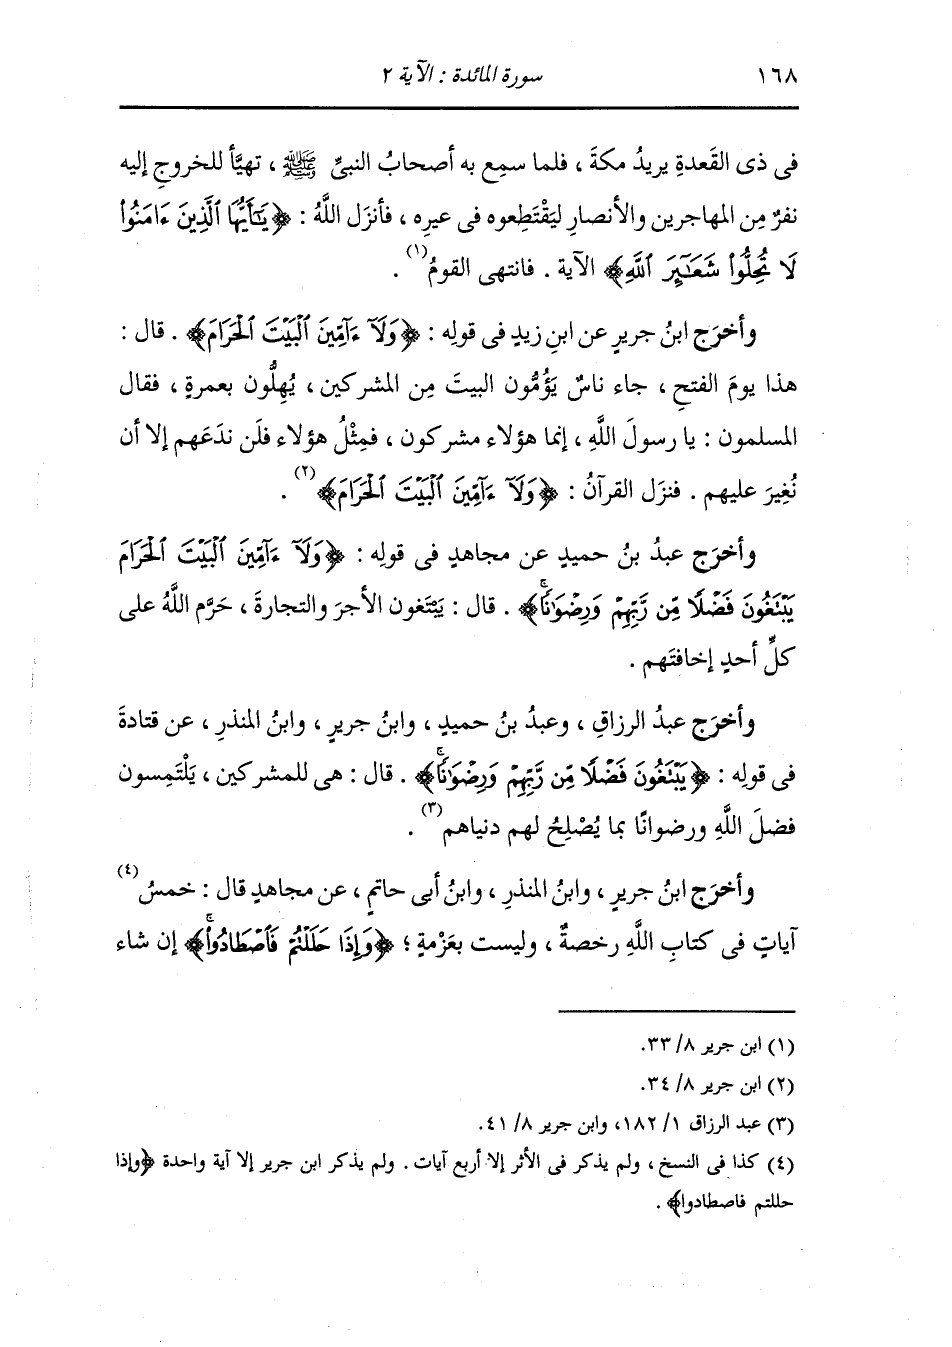 ١٦٨
سورة المائدة : الآية ٢
فى ذى القَعدةِ يريدُ مكةَ ، فلما سمِع به أصحابُ النبىِّ ﷺ ، تهيَّأ للخروجِ إليه
نفرٌ مِن المهاجرين والأنصارِ ليَقْتَطِعوه فى عيرِه ، فأنزَل اللَّهُ : ﴿يَٰٓأَيُّهَا ٱلَّذِينَ ءَامَنُوا۟
لَا تُحِلُّوا۟ شَعَٰٓئِرَ ٱللَّهِ﴾ الآية . فانتهى القومُ(١) .
وأخرَج ابنُ جريرٍ عن ابنِ زيدٍ فى قولِه : ﴿وَلَآ ءَآمِّينَ ٱلْبَيْتَ ٱلْحَرَامَ﴾ . قال :
هذا يومَ الفتحِ ، جاء ناسٌ يَؤُمُّون البيتَ مِن المشركين ، يُهِلُّون بعمرةٍ ، فقال
المسلمون : يا رسولَ اللَّهِ ، إنما هؤلاء مشركون ، فمِثْلُ هؤلاء فلَن ندَعَهم إلا أن
نُغِيرَ عليهم . فنزَل القرآنُ : ﴿وَلَآ ءَآمِّينَ ٱلْبَيْتَ ٱلْحَرَامَ﴾(٢) .
وأخرَج عبدُ بنُ حميدٍ عن مجاهدٍ فى قولِه : ﴿وَلَآ ءَآمِّينَ ٱلْبَيْتَ ٱلْحَرَامَ
يَبْتَغُونَ فَضْلًا مِّن رَّبِّهِمْ وَرِضْوَٰنًا﴾ . قال : يَبْتَغون الأجرَ والتجارةَ ، حَرَّم اللَّهُ على
كلِّ أحدٍ إخافتَهم .
وأخرَج عبدُ الرزاقِ ، وعبدُ بنُ حميدٍ ، وابنُ جريرٍ ، وابنُ المنذرِ ، عن قتادةَ
فى قولِه : ﴿يَبْتَغُونَ فَضْلًا مِّن رَّبِّهِمْ وَرِضْوَٰنًا﴾ . قال : هى للمشركين ، يَلْتَمِسون
فضلَ اللَّهِ ورضوانًا بما يُصْلِحُ لهم دنياهم(٣) .
وأخرَج ابنُ جريرٍ ، وابنُ المنذرِ ، وابنُ أبى حاتمٍ ، عن مجاهدٍ قال : خمسُ(٤)
آياتٍ فى كتابِ اللَّهِ رخصةٌ ، وليست بعَزْمةٍ ؛ ﴿وَإِذَا حَلَلْتُمْ فَٱصْطَادُوا۟﴾ إن شاء
(١) ابن جرير ٨/ ٣٣.
(٢) ابن جرير ٨/ ٣٤.
(٣) عبد الرزاق ١/ ١٨٢، وابن جرير ٨/ ٤١.
(٤) كذا فى النسخ ، ولم يذكر فى الأثر إلا أربع آيات . ولم يذكر ابن جرير إلا آية واحدة ﴿وإذا
حللتم فاصطادوا﴾ .